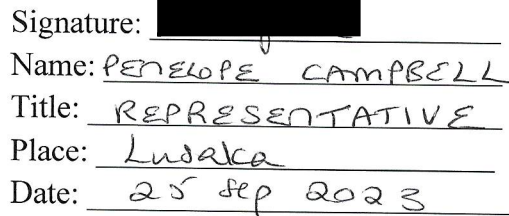 Signature:
Name: PENELOPE CAMPBELL
Title: REPRESENTATIVE
Place: Lusaka
Date: 25 Sep 2023